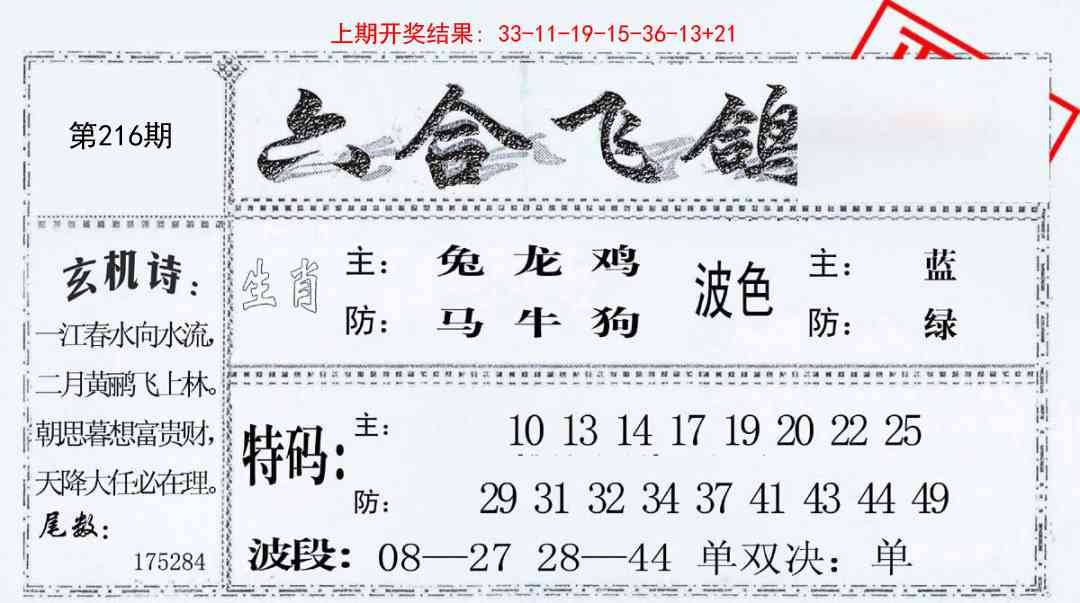 上期开奖结果: 33-11-19-15-36-13+21
第216期
六合飞鸽
玄机诗:
一江春水向水流,
二月黄鹂飞上林。
朝思暮想富贵财,
天降大任必在理。
尾数:
175284
生肖
主: 兔 龙 鸡
防: 马 牛 狗
波色
主: 蓝
防: 绿
特码:
主: 10 13 14 17 19 20 22 25
防: 29 31 32 34 37 41 43 44 49
波段: 08—27 28—44 单双决: 单